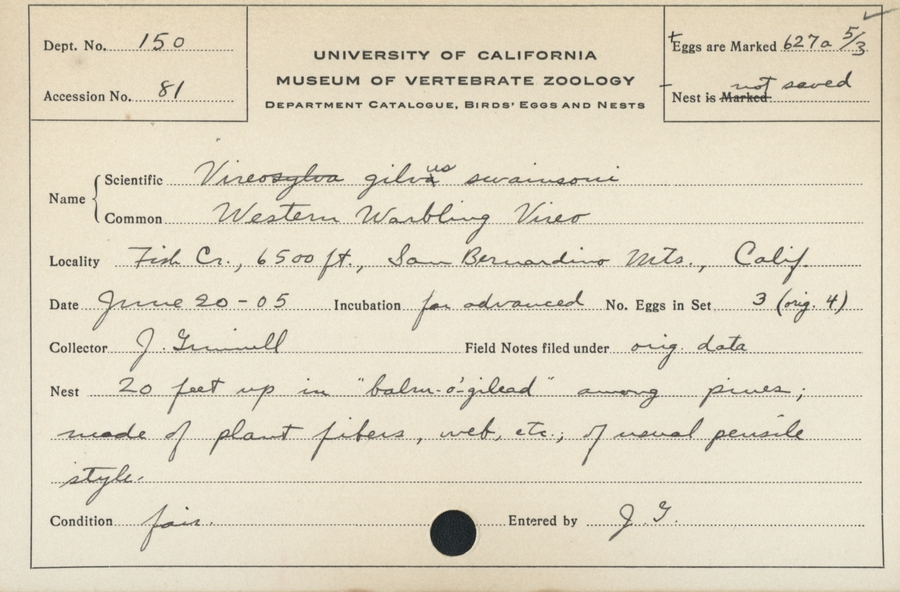 Dept. No. 150
Accession No. 81
UNIVERSITY OF CALIFORNIA
MUSEUM OF VERTEBRATE ZOOLOGY
DEPARTMENT CATALOGUE, BIRDS' EGGS AND NESTS
Eggs are Marked 627a 5/3
Nest is Marked not saved
Name
Scientific Vireosylva gilvus swainsoni
Common Western Warbling Vireo
Locality Fish Cr., 6500 ft., San Bernardino Mts., Calif.
Date June 20-05 Incubation far advanced No. Eggs in Set 3 (orig. 4)
Collector J. Grinnell Field Notes filed under orig. data
Nest 20 feet up in "balm-o'-gilead" among pines;
made of plant fibers, web, etc.; of usual pensile
style.
Condition fair. Entered by J. G.